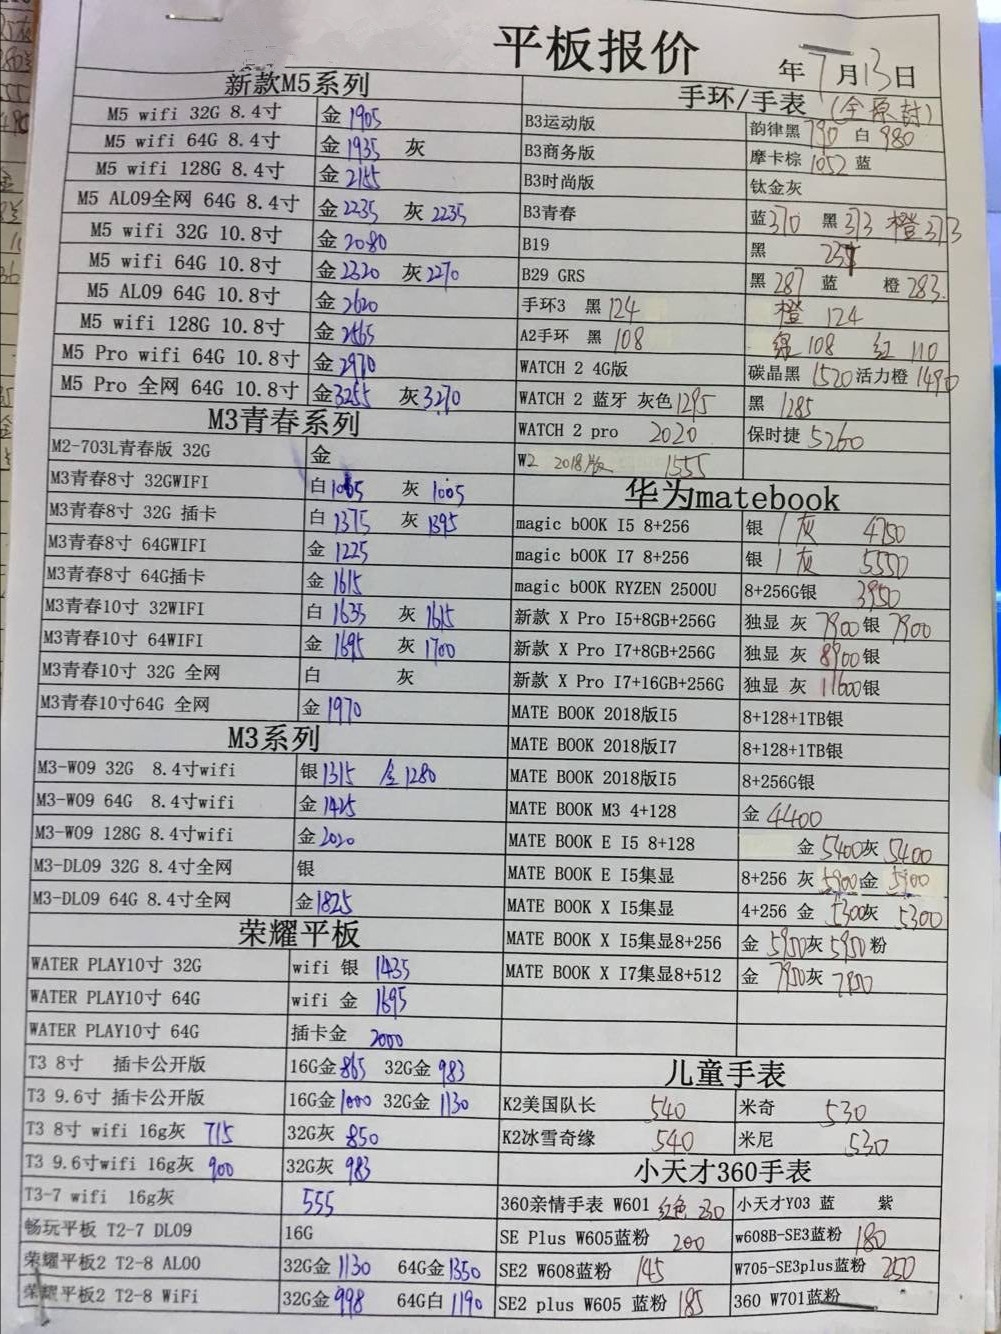 平板报价
年7月13日
新款M5系列
M5 wifi 32G 8.4寸 金1905
M5 wifi 64G 8.4寸 金1935 灰
M5 wifi 128G 8.4寸 金2155
M5 AL09全网 64G 8.4寸 金2235 灰2235
M5 wifi 32G 10.8寸 金2080
M5 wifi 64G 10.8寸 金2320 灰2270
M5 AL09 64G 10.8寸 金2620
M5 wifi 128G 10.8寸 金2565
M5 Pro wifi 64G 10.8寸 金2970
M5 Pro 全网 64G 10.8寸 金3255 灰3270
M3青春系列
M2-703L青春版 32G 金
M3青春8寸 32GWIFI 白1065 灰1005
M3青春8寸 32G 插卡 白1375 灰1395
M3青春8寸 64GWIFI 金1225
M3青春8寸 64G插卡 金1615
M3青春10寸 32WIFI 白1635 灰1615
M3青春10寸 64WIFI 金1695 灰1700
M3青春10寸 32G 全网 白 灰
M3青春10寸64G 全网 金1970
M3系列
M3-W09 32G 8.4寸wifi 银1315 金1280
M3-W09 64G 8.4寸wifi 金1425
M3-W09 128G 8.4寸wifi 金2020
M3-DL09 32G 8.4寸全网 银
M3-DL09 64G 8.4寸全网 金1825
荣耀平板
WATER PLAY10寸 32G wifi 银 1435
WATER PLAY10寸 64G wifi 金 1695
WATER PLAY10寸 64G 插卡金 2000
T3 8寸 插卡公开版 16G金865 32G金983
T3 9.6寸 插卡公开版 16G金1000 32G金1130
T3 8寸 wifi 16g灰 715 32G灰 850
T3 9.6寸wifi 16g灰 900 32G灰 983
T3-7 wifi 16g灰 555
畅玩平板 T2-7 DL09 16G
荣耀平板2 T2-8 AL00 32G金1130 64G金1350
荣耀平板2 T2-8 WiFi 32G金998 64G白1190
手环/手表(全原封)
B3运动版 韵律黑790 白980
B3商务版 摩卡棕1052 蓝
B3时尚版 钛金灰
B3青春 蓝370 黑373 橙373
B19 黑
B29 GRS 黑287 蓝 橙283
手环3 黑124 橙 124
A2手环 黑 108 绿108 红110
WATCH 2 4G版 碳晶黑 1520 活力橙1490
WATCH 2 蓝牙 灰色1295 黑 1285
WATCH 2 pro 2020 保时捷 5260
W2 2018版 1555
华为matebook
magic bOOK I5 8+256 银 / 灰 4750
magic bOOK I7 8+256 银 / 灰 5550
magic bOOK RYZEN 2500U 8+256G银 3950
新款 X Pro I5+8GB+256G 独显 灰 7900银 7900
新款 X Pro I7+8GB+256G 独显 灰 8900银
新款 X Pro I7+16GB+256G 独显 灰 11600银
MATE BOOK 2018版I5 8+128+1TB银
MATE BOOK 2018版I7 8+128+1TB银
MATE BOOK 2018版I5 8+256G银
MATE BOOK M3 4+128 金 4400
MATE BOOK E I5 8+128 金5400灰5400
MATE BOOK E I5集显 8+256 灰5900金5900
MATE BOOK X I5集显 4+256 金 5300灰 5300
MATE BOOK X I5集显8+256 金 5950灰5950粉
MATE BOOK X I7集显8+512 金 7950灰 7950
儿童手表
K2美国队长 540 米奇 530
K2冰雪奇缘 540 米尼 530
小天才360手表
360亲情手表 W601 红色 230 小天才Y03 蓝 紫
SE Plus W605蓝粉 200 w608B-SE3蓝粉 180
SE2 W608蓝粉 145 W705-SE3plus蓝粉 250
SE2 plus W605 蓝粉 185 360 W701蓝粉